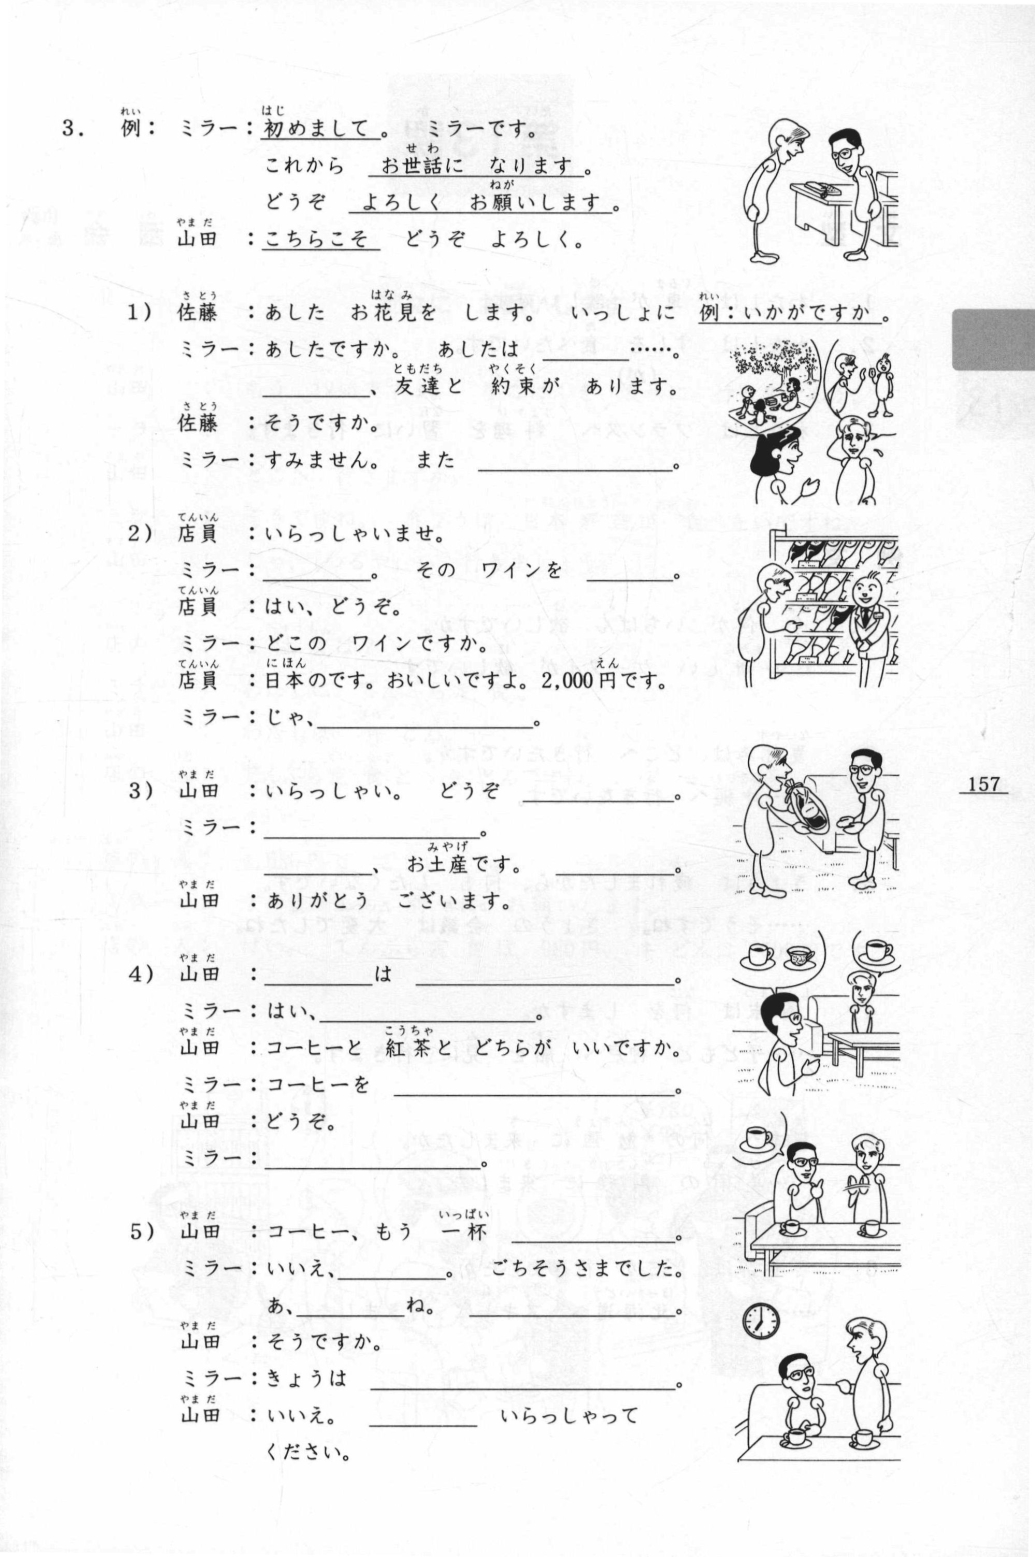 3. 例： ミラー：初めまして。 ミラーです。
これから お世話に なります。
どうぞ よろしく お願いします。
山田 ：こちらこそ どうぞ よろしく。
1) 佐藤 ：あした お花見を します。 いっしょに 例：いかがですか。
ミラー：あしたですか。 あしたは ______……。
______、友達と 約束が あります。
佐藤 ：そうですか。
ミラー：すみません。 また ______。
2) 店員 ：いらっしゃいませ。
ミラー：______。 その ワインを ______。
店員 ：はい、どうぞ。
ミラー：どこの ワインですか。
店員 ：日本のです。おいしいですよ。2,000円です。
ミラー：じゃ、______。
3) 山田 ：いらっしゃい。 どうぞ ______。
ミラー：______。
______、 お土産です。 ______。
山田 ：ありがとう ございます。
4) 山田 ：______は ______。
ミラー：はい、______。
山田 ：コーヒーと 紅茶と どちらが いいですか。
ミラー：コーヒーを ______。
山田 ：どうぞ。
ミラー：______。
5) 山田 ：コーヒー、もう 一杯 ______。
ミラー：いいえ、______。 ごちそうさまでした。
あ、______ね。 ______。
山田 ：そうですか。
ミラー：きょうは ______。
山田 ：いいえ。 ______ いらっしゃって
ください。
157